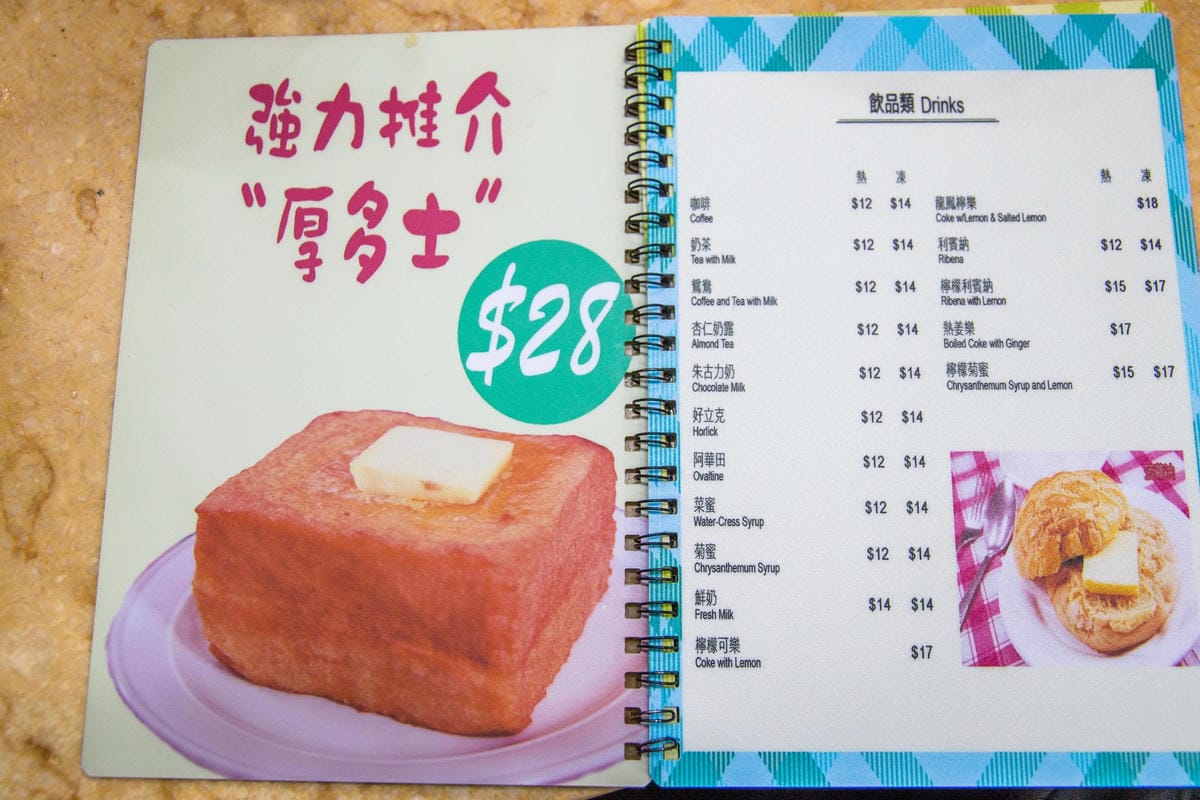 強力推介
"厚多士"
$28
飲品類 Drinks
熱 凍
咖啡 $12 $14
Coffee
奶茶 $12 $14
Tea with Milk
鴛鴦 $12 $14
Coffee and Tea with Milk
杏仁奶露 $12 $14
Almond Tea
朱古力奶 $12 $14
Chocolate Milk
好立克 $12 $14
Horlick
阿華田 $12 $14
Ovaltine
菜蜜 $12 $14
Water-Cress Syrup
菊蜜 $12 $14
Chrysanthemum Syrup
鮮奶 $14 $14
Fresh Milk
檸檬可樂 $17
Coke with Lemon
熱 凍
龍鳳檸樂 $18
Coke w/Lemon & Salted Lemon
利賓納 $12 $14
Ribena
檸檬利賓納 $15 $17
Ribena with Lemon
熱姜樂 $17
Boiled Coke with Ginger
檸檬菊蜜 $15 $17
Chrysanthemum Syrup and Lemon